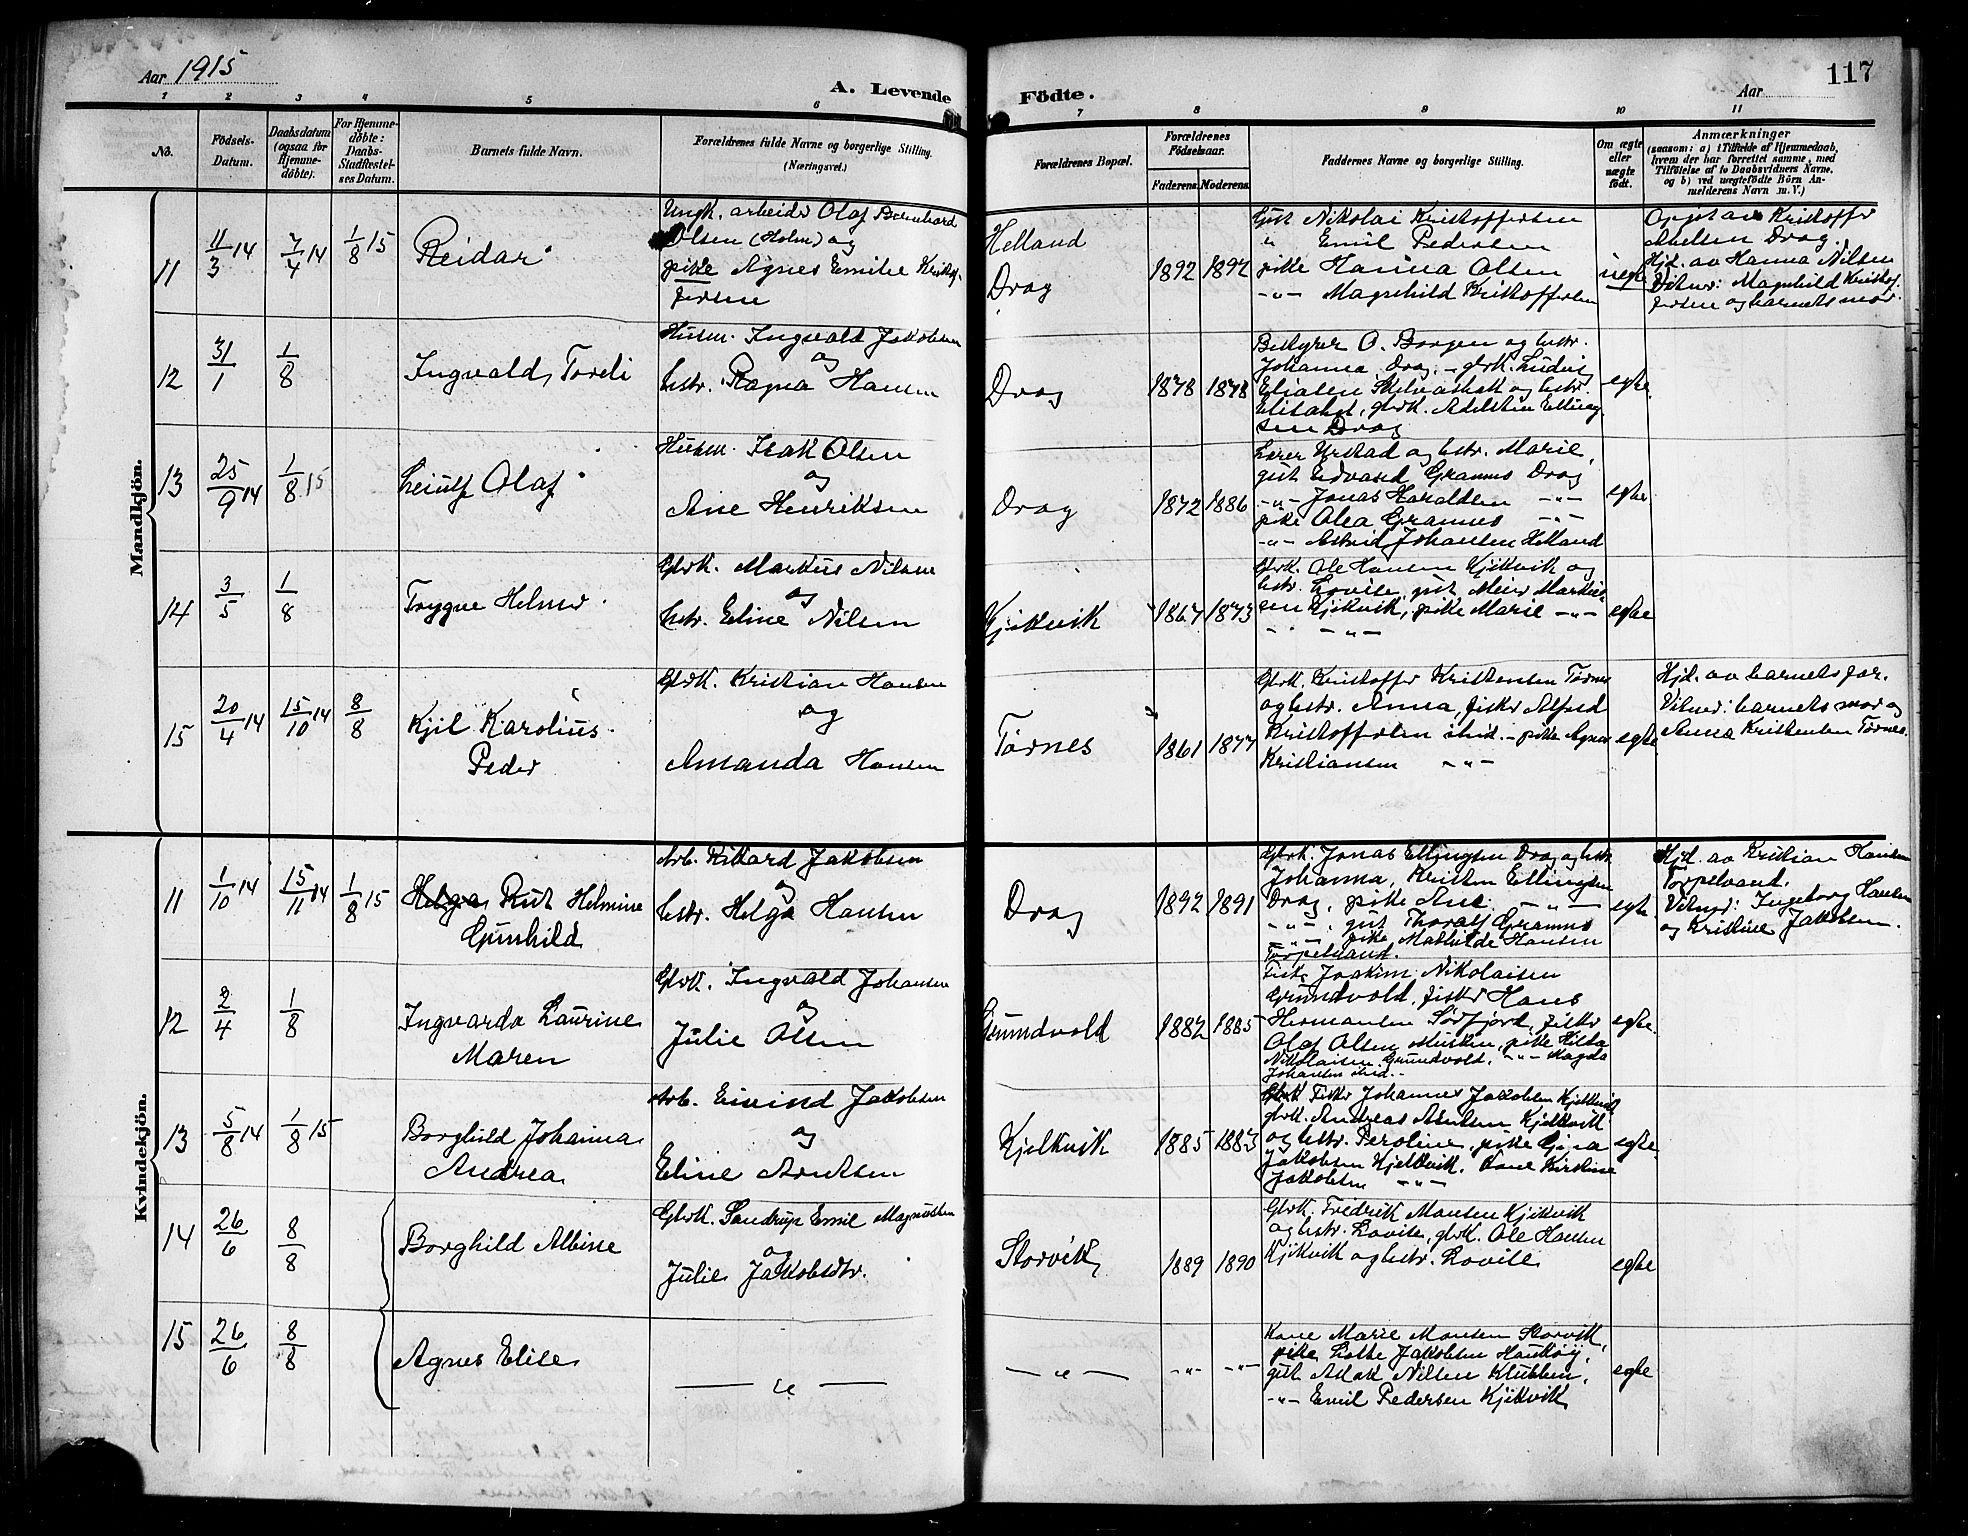 Aar 1915
A. Levende Födte.
Aar
117
1 2 3 4 5 6 7 8 9 10 11
No.
Födsels-Datum.
Daabsdatum (ogsaa for Hjemme-döbte).
For Hjemme-döbte: Daabs-Stadfæstel-ses Datum.
Barnets fulde Navn.
Forældrenes fulde Navne og borgerlige Stilling.
(Næringsvei.)
Forældrenes Bopæl.
Forældrenes Födselsaar.
Faderens. Moderens.
Faddernes Navne og borgerlige Stilling.
Om ægte eller uægte födt.
Anmærkninger
(saasom: a) i Tilfælde af Hjemmedaab,
hvem der har forrettet samme, med
Tilföielse af to Daabsvidners Navne,
og b) ved uægtefödte Börn An-
melderens Navn m. V.)
Mandkjön.
11 11/3 14 7/4 14 1/8 15
Reidar
Ungk. arbeider Olaf Bernhard
Olsen (Holm) og
pike Agnes Emilie Kristof-
fersen
Helland
Drag
1892 1892
Gut Nikolai Kristoffersen
" Emil Pedersen
pike Hanna Olsen
-"- Magnhild Kristoffersen
uegte
Opgit av Kristoffer
Abelsen Drag.
Hjd. av Hanna Nilsen
Vitner: Magnhild Kristof-
fersen og barnets mor.
12 31/1 1/8
Ingvald Toreli
Husm. Ingvald Jakobsen
og
hstr. Ragna Hansen
Drag
1878 1878
Bestyrer O. Borgen og hstr.
Johanna Drag, - gbrk. Ludvig
Eliasen og hstr.
Elisabet, gbrk. Adelsten Elling
sen Drag
egte
13 25/9 14 1/8 15
Leiulf Olaf
Husm. Isak Olsen
og
Ane Henriksen
Drag
1872 1886
Lærer Urstad og hstr. Marie,
gut Edvard Gramnes Drag
-"- Jonas Haraldsen -"-
pike Olea Gramnes -"-
-"- Astrid Johansen Helland
egte
14 3/5 1/8
Trygve Helmer
Gbrk. Markus Nilsen
og
hstr. Eline Nilsen
Kjikvik
1867 1873
Gbrk. Ole Hansen Kjikvik og
hstr. Lovise, gut Meier Markus-
sen Kjikvik, pike Marie -"-
- -"-
egte
15 20/4 14 15/10 14 8/8
Kjil Karolius
Peder
Gbrk. Kristian Hansen
og
Amanda Hansen
Tørnes
1861 1877
Gbrk. Kristoffer Kristensen Tørnes
og hstr. Anna, fisker Alfred
Kristoffersen ibid. - pike Agnes
Kristiansen -"-
egte
Hjd. av barnets far.
Vitner: barnets mor og
Anna Kristensen Tørnes.
Kvindekjön.
11 1/10 14 15/11 14 1/8 15
Helga Rut Helmine
Gunhild
Arb. Rikard Jakobsen
og
hstr. Helga Hansen
Drag
1892 1891
Gbrk. Jonas Ellingsen Drag og hstr
Johanna, Kristen Ellingsen
Drag, pike Ane -"-
-"-, gut Thoralf Gramnes
-"- pike Mathilde Hansen
Torpelvand.
egte
Hjd. av Kristian Hansen
Torpelvand.
Vitner: Ingeborg Hansen
og Kristine Jakobsen.
12 2/4 1/8
Ingvarda Laurine
Maren
Gbrk. Ingvald Johansen
og
Julie Olsen
Grundvold
1882 1885
Fisk. Joakim Nikolaisen
Grundvold, fisker Hans
Hermansen Sørfjord, fisker
Olaf Olsen Musken, pike Hilda
Nikolaisen Grundvold. -"- Magda
Johansen ibid.
egte.
13 5/8 14 1/8 15
Borghild Johanna
Andrea
Arb. Eivind Jakobsen
og
Eline Arntsen
Kjelkvik
1885 1883
Gbrk Fisker Johannes Jakobsen Kjelkvik
gbrk. Andreas Arntsen Kjelkvik
og hstr. Peroline, pike Gina
Jakobsen Kjelkvik. Kone Kirstine
Jakobsen -"-
egte.
14 26/6 8/8
Borghild Albine
Gbrk. Sandrup Emil Magnussen
og
Julie Jakobsdtr.
Storvik
1889 1890
Gbrk. Fredrik Monsen Kjikvik
og hstr. Lovise, gbrk. Ole Hansen
Kjikvik og hstr. Lovise
egte
15 26/6 8/8
Agnes Elise
— " —
— " —
-"- -"-
Kone Marie Monsen Storvik,
pike Lotte Jakobsen Haukøy,
gut Adak Nilsen Klubben,
-"- Emil Pedersen Kjikvik
egte